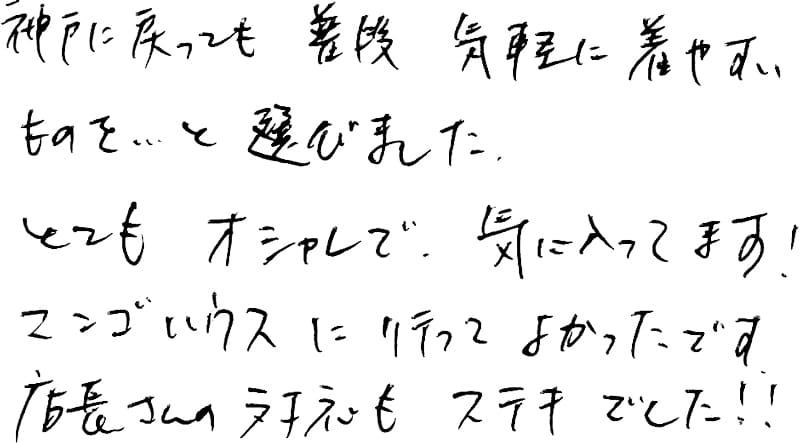 神戸に戻っても 普段 気軽に着やすい
ものを…と選びました。
とても オシャレで、気に入ってます!
マンゴハウスに行って よかったです。
店長さんの対応も ステキでした!!